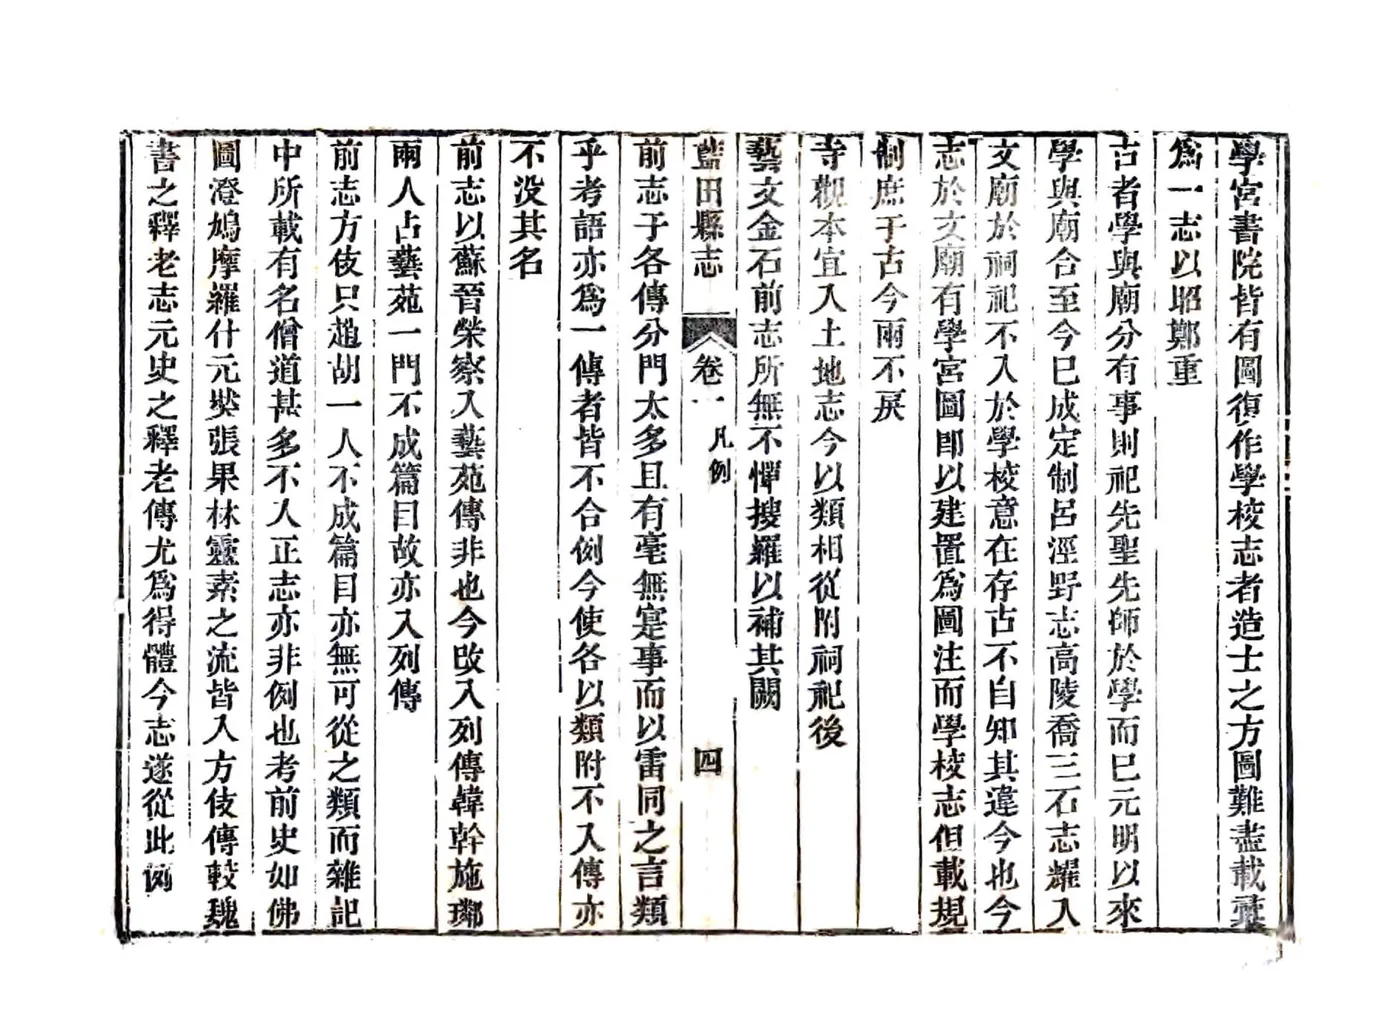 學宮書院皆有圖復作學校志者造士之方圖難盡載彙
爲一志以昭鄭重
古者學與廟分有事則祀先聖先師於學而已元明以來
學與廟合至今已成定制呂涇野志高陵喬三石志耀入
文廟於祠祀不入於學校意在存古不自知其違今也今
志於文廟有學宮圖卽以建置爲圖注而學校志但載規
制庶于古今兩不戾
寺觀本宜入土地志今以類相從附祠祀後
藝文金石前志所無不憚搜羅以補其闕
藍田縣志 卷一 凡例 四
前志于各傳分門太多且有毫無寔事而以雷同之言類
乎考語亦爲一傳者皆不合例今使各以類附不入傳亦
不没其名
前志以蘇晉榮察入藝苑傳非也今改入列傳韓幹施璘
兩人占藝苑一門不成篇目故亦入列傳
前志方伎只趙胡一人不成篇目亦無可從之類而雜記
中所載有名僧道甚多不入正志亦非例也考前史如佛
圖澄鳩摩羅什元奘張果林靈素之流皆入方伎傳較魏
書之釋老志元史之釋老傳尤爲得體今志遂從此例